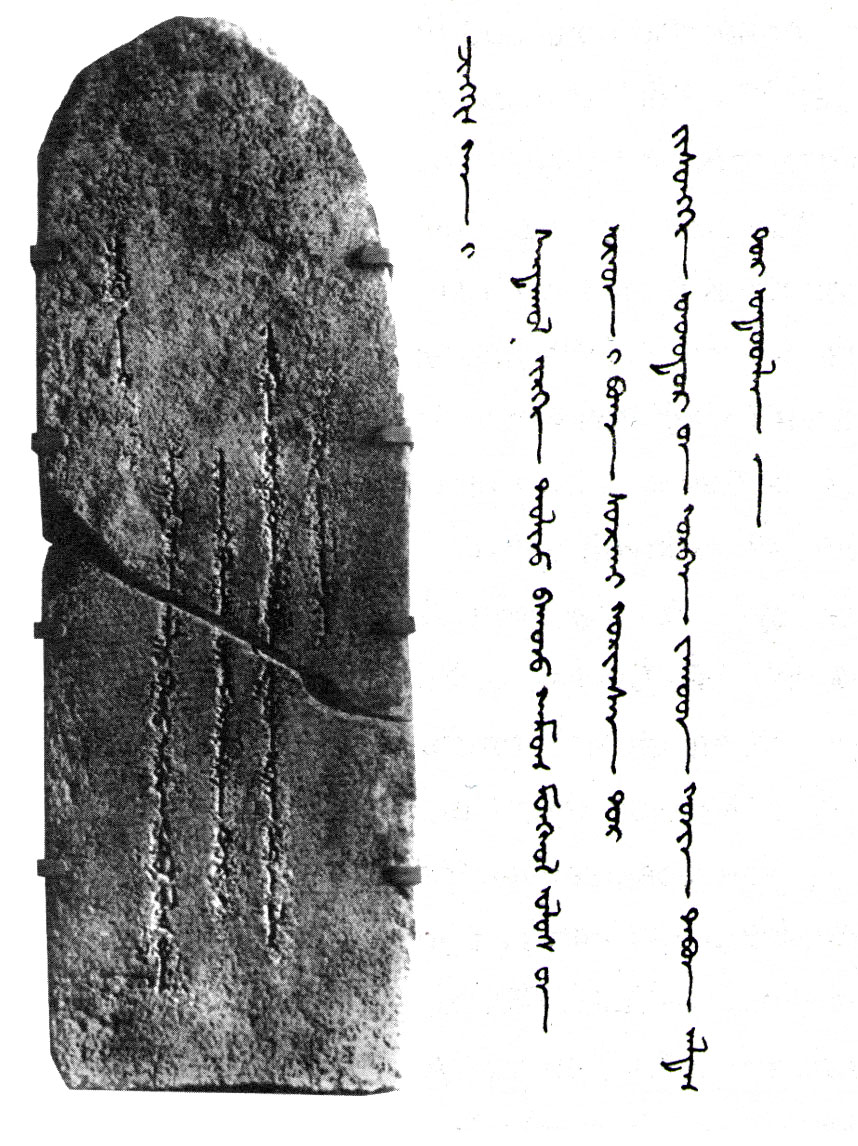 ᠴᠢᠩᠭᠢᠰ ᠬᠠᠨ ᠢ
ᠰᠠᠷᠲᠠᠭᠤᠯ ᠢᠷᠭᠡ ᠳᠠᠭᠤᠯᠢᠵᠤ ᠪᠠᠭᠤᠵᠤ ᠬᠠᠮᠤᠭ ᠮᠣᠩᠭᠣᠯ ᠤᠯᠤᠰ ᠤᠨ
ᠨᠣᠶᠠᠳ ᠢ ᠪᠤᠬᠠ ᠰᠤᠴᠢᠭᠠᠢ ᠬᠤᠷᠢᠭᠰᠠᠨ ᠳᠤᠷ
ᠶᠢᠰᠦᠩᠭᠡ ᠣᠨᠲᠤᠳᠤᠷᠤᠨ ᠭᠤᠷᠪᠠᠨ ᠵᠠᠭᠤᠳ ᠭᠤᠴᠢᠨ ᠲᠠᠪᠤᠨ ᠠᠯᠳᠠᠰ
ᠲᠤᠷ ᠣᠨᠲᠤᠳᠤᠯᠠᠭᠠ